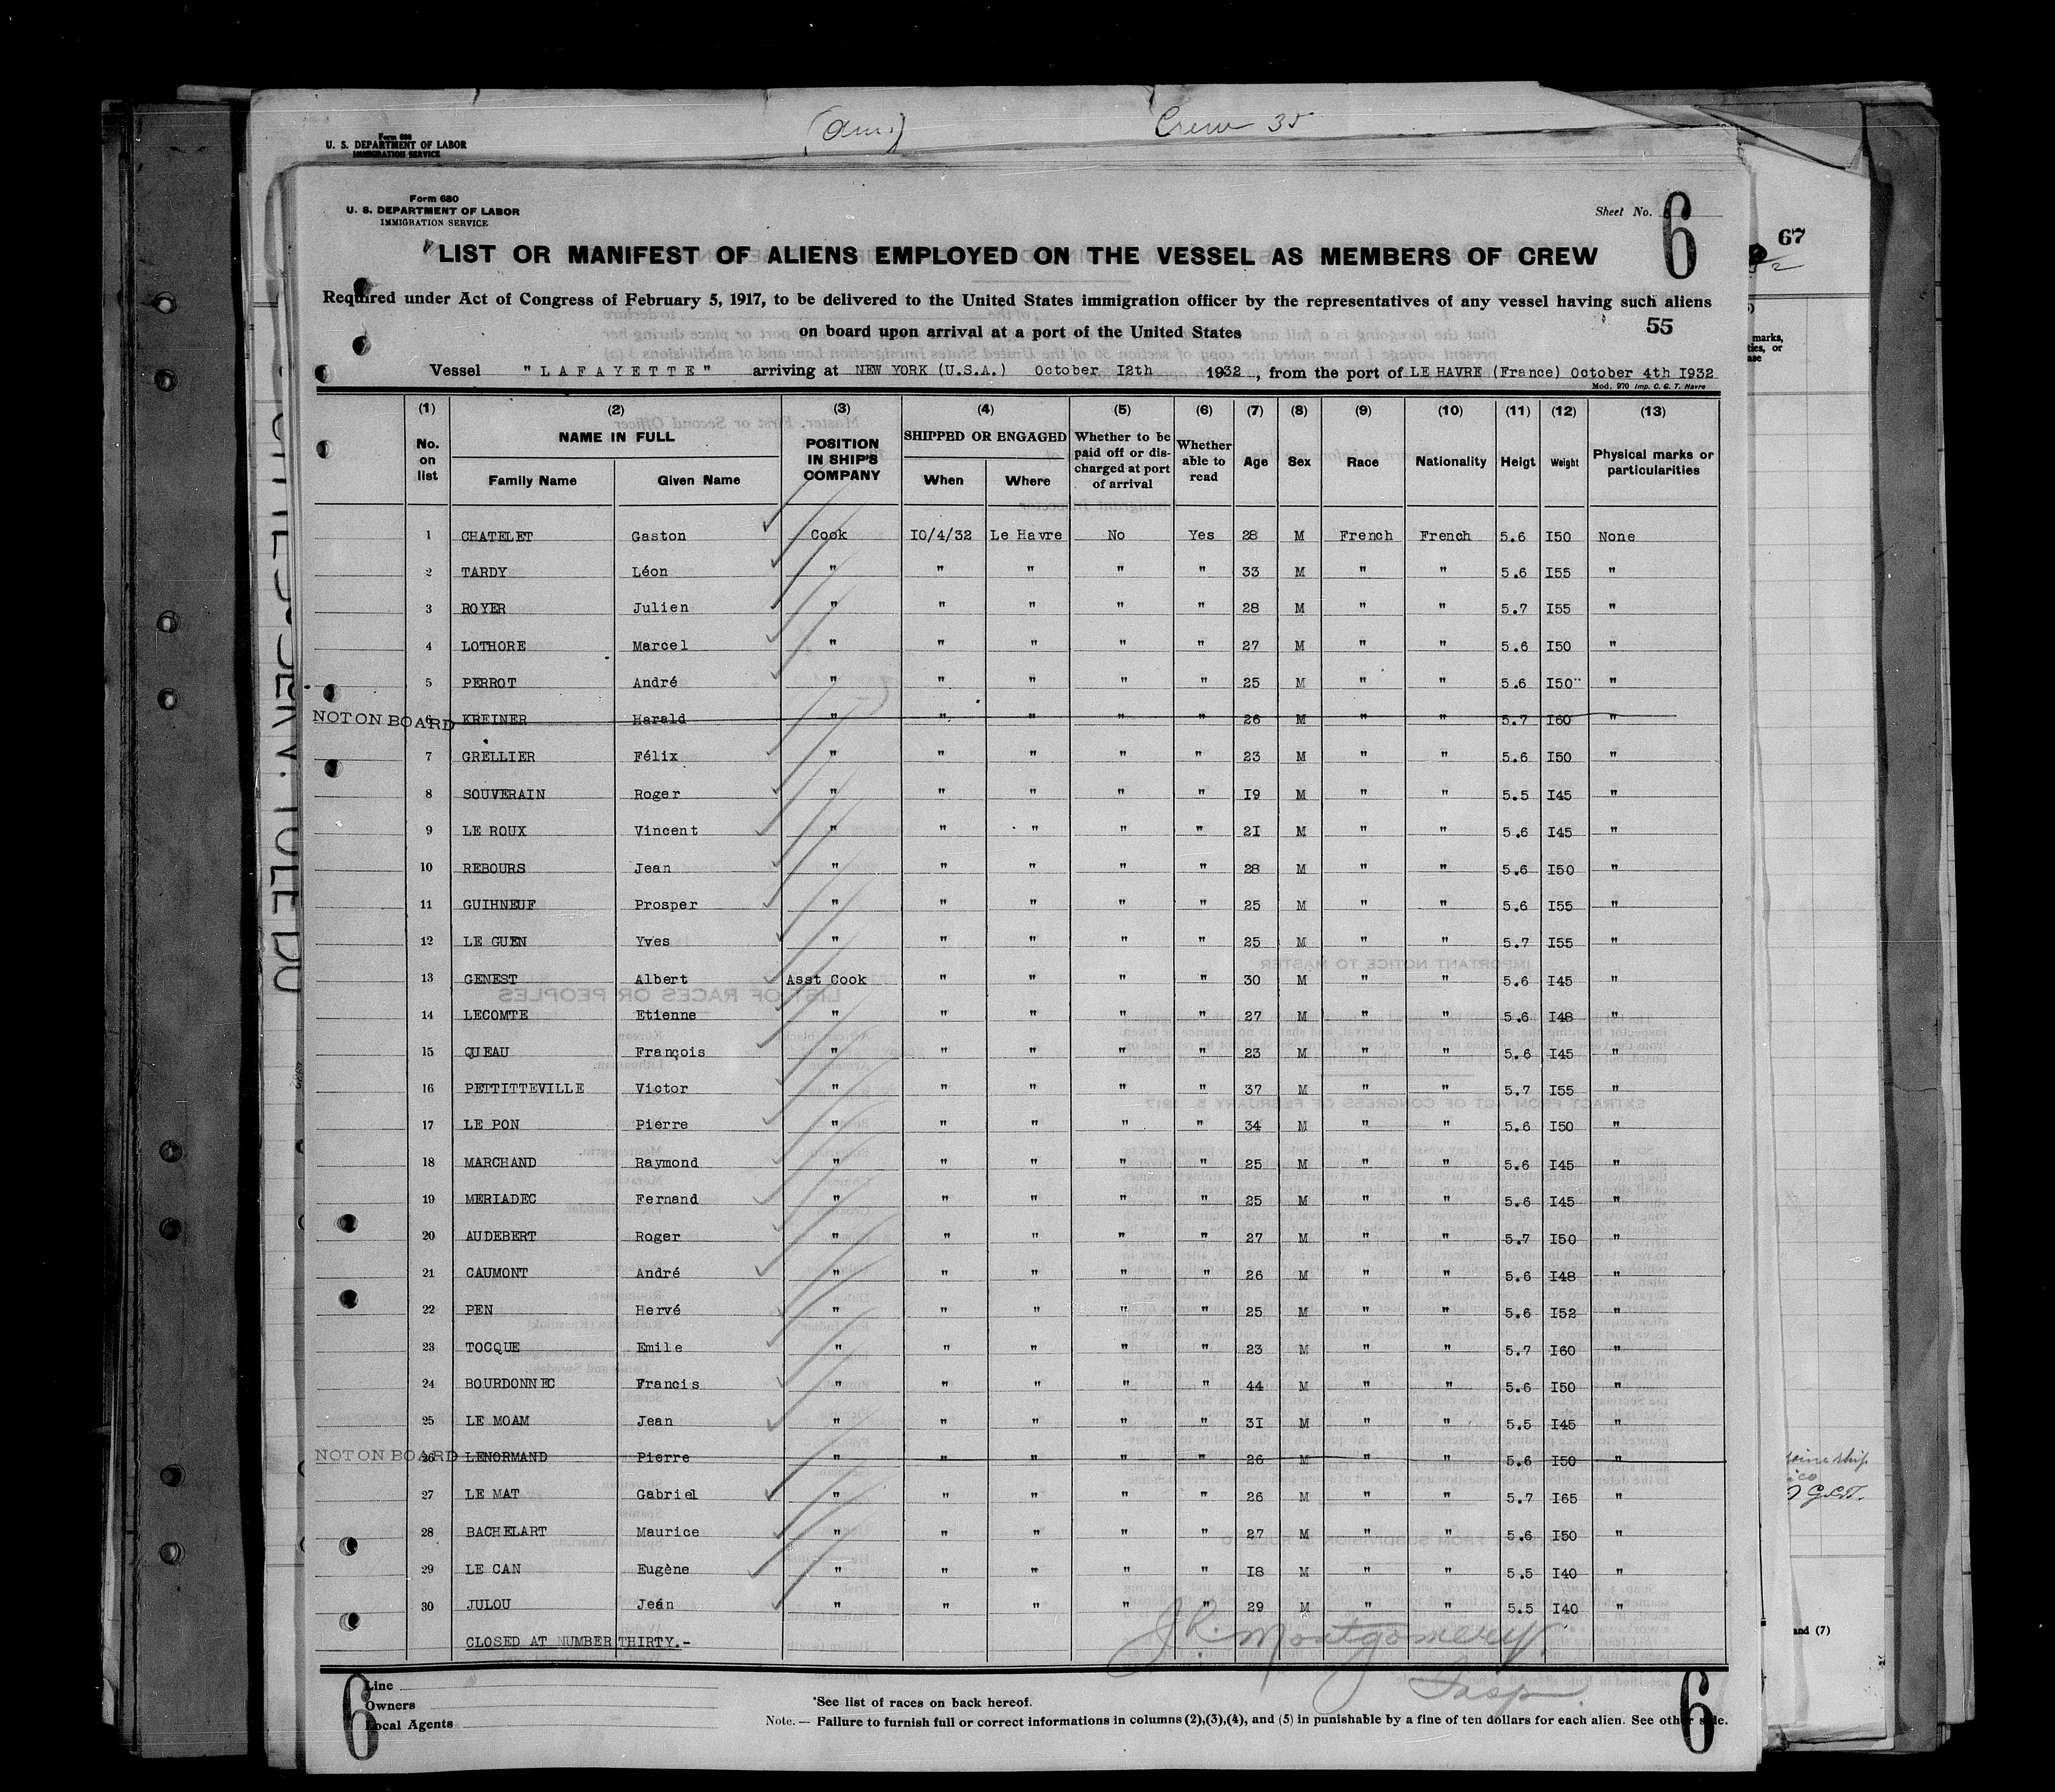 (am.) Crew 35
Form 680
U. S. DEPARTMENT OF LABOR
IMMIGRATION SERVICE
Form 680
U. S. DEPARTMENT OF LABOR
IMMIGRATION SERVICE
Sheet No. 6
67
LIST OR MANIFEST OF ALIENS EMPLOYED ON THE VESSEL AS MEMBERS OF CREW
Required under Act of Congress of February 5, 1917, to be delivered to the United States immigration officer by the representatives of any vessel having such aliens
on board upon arrival at a port of the United States
55
Vessel "LAFAYETTE" arriving at NEW YORK (U.S.A.) October I2th 1932, from the port of LE HAVRE (France) October 4th I932
Mod. 970 Imp. C. G. T. Havre
(1) (2) (3) (4) (5) (6) (7) (8) (9) (10) (11) (12) (13)
No. on list NAME IN FULL Family Name Given Name POSITION IN SHIP'S COMPANY SHIPPED OR ENGAGED When Where Whether to be paid off or discharged at port of arrival Whether able to read Age Sex Race Nationality Heigt Weight Physical marks or particularities
1 CHATELET Gaston Cook IO/4/32 Le Havre No Yes 28 M French French 5.6 I50 None
2 TARDY Léon " " " " " 33 M " " 5.6 I55 "
3 ROYER Julien " " " " " 28 M " " 5.7 I55 "
4 LOTHORE Marcel " " " " " 27 M " " 5.6 I50 "
5 PERROT André " " " " " 25 M " " 5.6 I50 "
NOT ON BOARD 6 KREINER Harald " " " " " 26 M " " 5.7 I60 "
7 GRELLIER Félix " " " " " 23 M " " 5.6 I50 "
8 SOUVERAIN Roger " " " " " I9 M " " 5.5 I45 "
9 LE ROUX Vincent " " " " " 2I M " " 5.6 I45 "
10 REBOURS Jean " " " " " 28 M " " 5.6 I50 "
11 GUIHNEUF Prosper " " " " " 25 M " " 5.6 I55 "
12 LE GUEN Yves " " " " " 25 M " " 5.7 I55 "
13 GENEST Albert Asst Cook " " " " 30 M " " 5.6 I45 "
14 LECOMTE Etienne " " " " " 27 M " " 5.6 I48 "
15 QUEAU François " " " " " 23 M " " 5.6 I45 "
16 PETTITTEVILLE Victor " " " " " 37 M " " 5.7 I55 "
17 LE PON Pierre " " " " " 34 M " " 5.6 I50 "
18 MARCHAND Raymond " " " " " 25 M " " 5.6 I45 "
19 MERIADEC Fernand " " " " " 25 M " " 5.6 I45 "
20 AUDEBERT Roger " " " " " 27 M " " 5.7 I50 "
21 CAUMONT André " " " " " 26 M " " 5.6 I48 "
22 PEN Hervé " " " " " 25 M " " 5.6 I52 "
23 TOCQUE Emile " " " " " 23 M " " 5.7 I60 "
24 BOURDONNEC Francis " " " " " 44 M " " 5.6 I50 "
25 LE MOAM Jean " " " " " 3I M " " 5.5 I45 "
NOT ON BOARD 26 LENORMAND Pierre " " " " " 26 M " " 5.6 I50 "
27 LE MAT Gabriel " " " " " 26 M " " 5.7 I65 "
28 BACHELART Maurice " " " " " 27 M " " 5.6 I50 "
29 LE CAN Eugène " " " " " I8 M " " 5.5 I40 "
30 JULOU Jeán " " " " " 29 M " " 5.5 I40 "
CLOSED AT NUMBER THIRTY.-
J.R. Montgomery
Insp.
Line
Owners
Local Agents
6
*See list of races on back hereof.
Note.— Failure to furnish full or correct informations in columns (2),(3),(4), and (5) in punishable by a fine of ten dollars for each alien. See other side.
6
marks,
and (7)